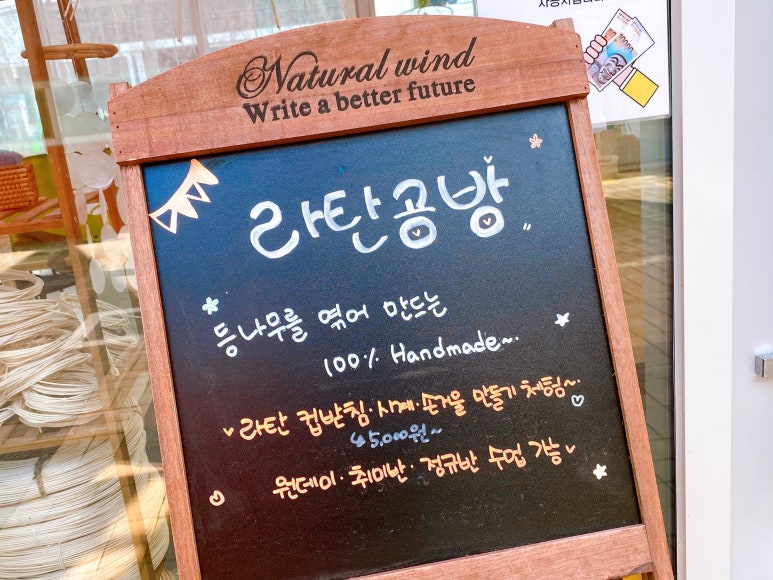 Natural wind
Write a better future
라탄공방
등나무를 엮어 만드는
100% Handmade~
라탄 컵받침·시계·손거울 만들기 체험~
↳ 5,000원~
원데이·취미반·정규반 수업 가능